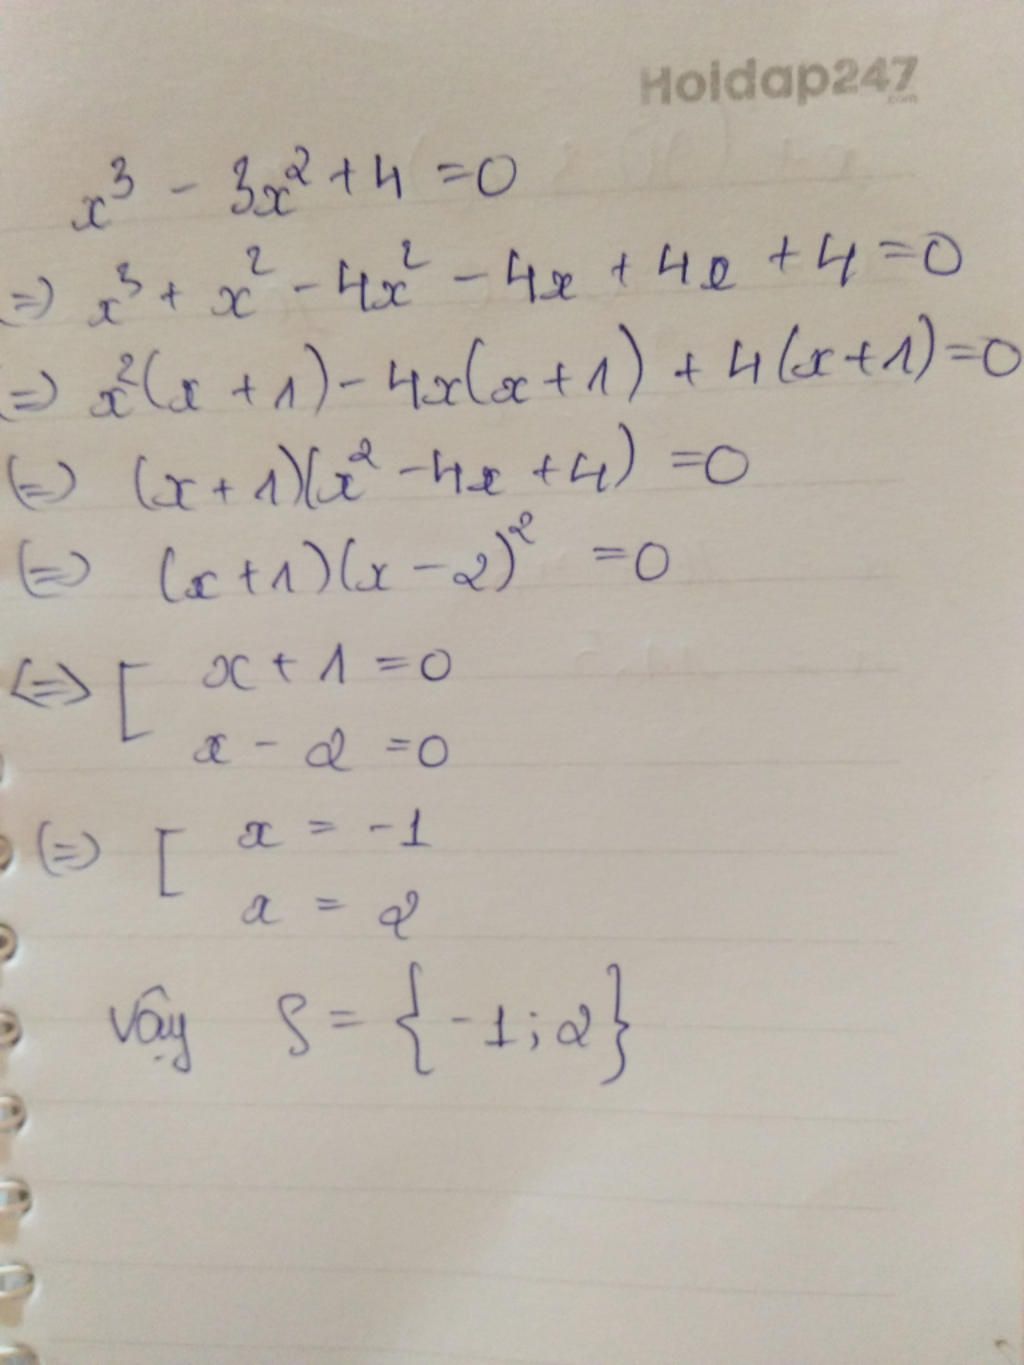 Hoidap247
.com
x³ - 3x² + 4 = 0
(=) x³ + x² - 4x² - 4x + 4x + 4 = 0
(=) x²(x + 1) - 4x(x + 1) + 4(x + 1) = 0
(=) (x + 1)(x² - 4x + 4) = 0
(=) (x + 1)(x - 2)² = 0
<=> [ x + 1 = 0
x - 2 = 0
(=) [ x = -1
x = 2
Vậy S = {-1; 2}